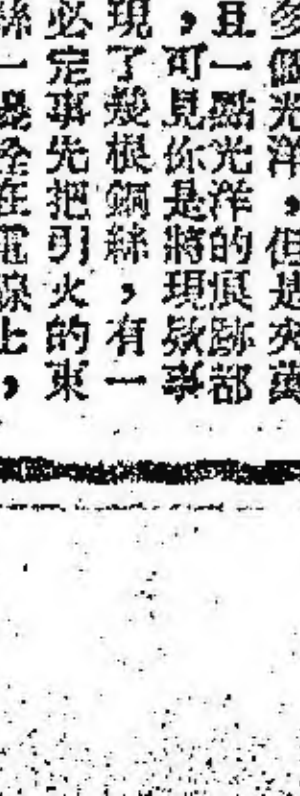 多個光洋,但是夾萬
且一點光洋的痕跡都
,可見你是將現欵事
現了幾根銅絲,有一
必定事先把引火的東
絲一邊拴在電線上,